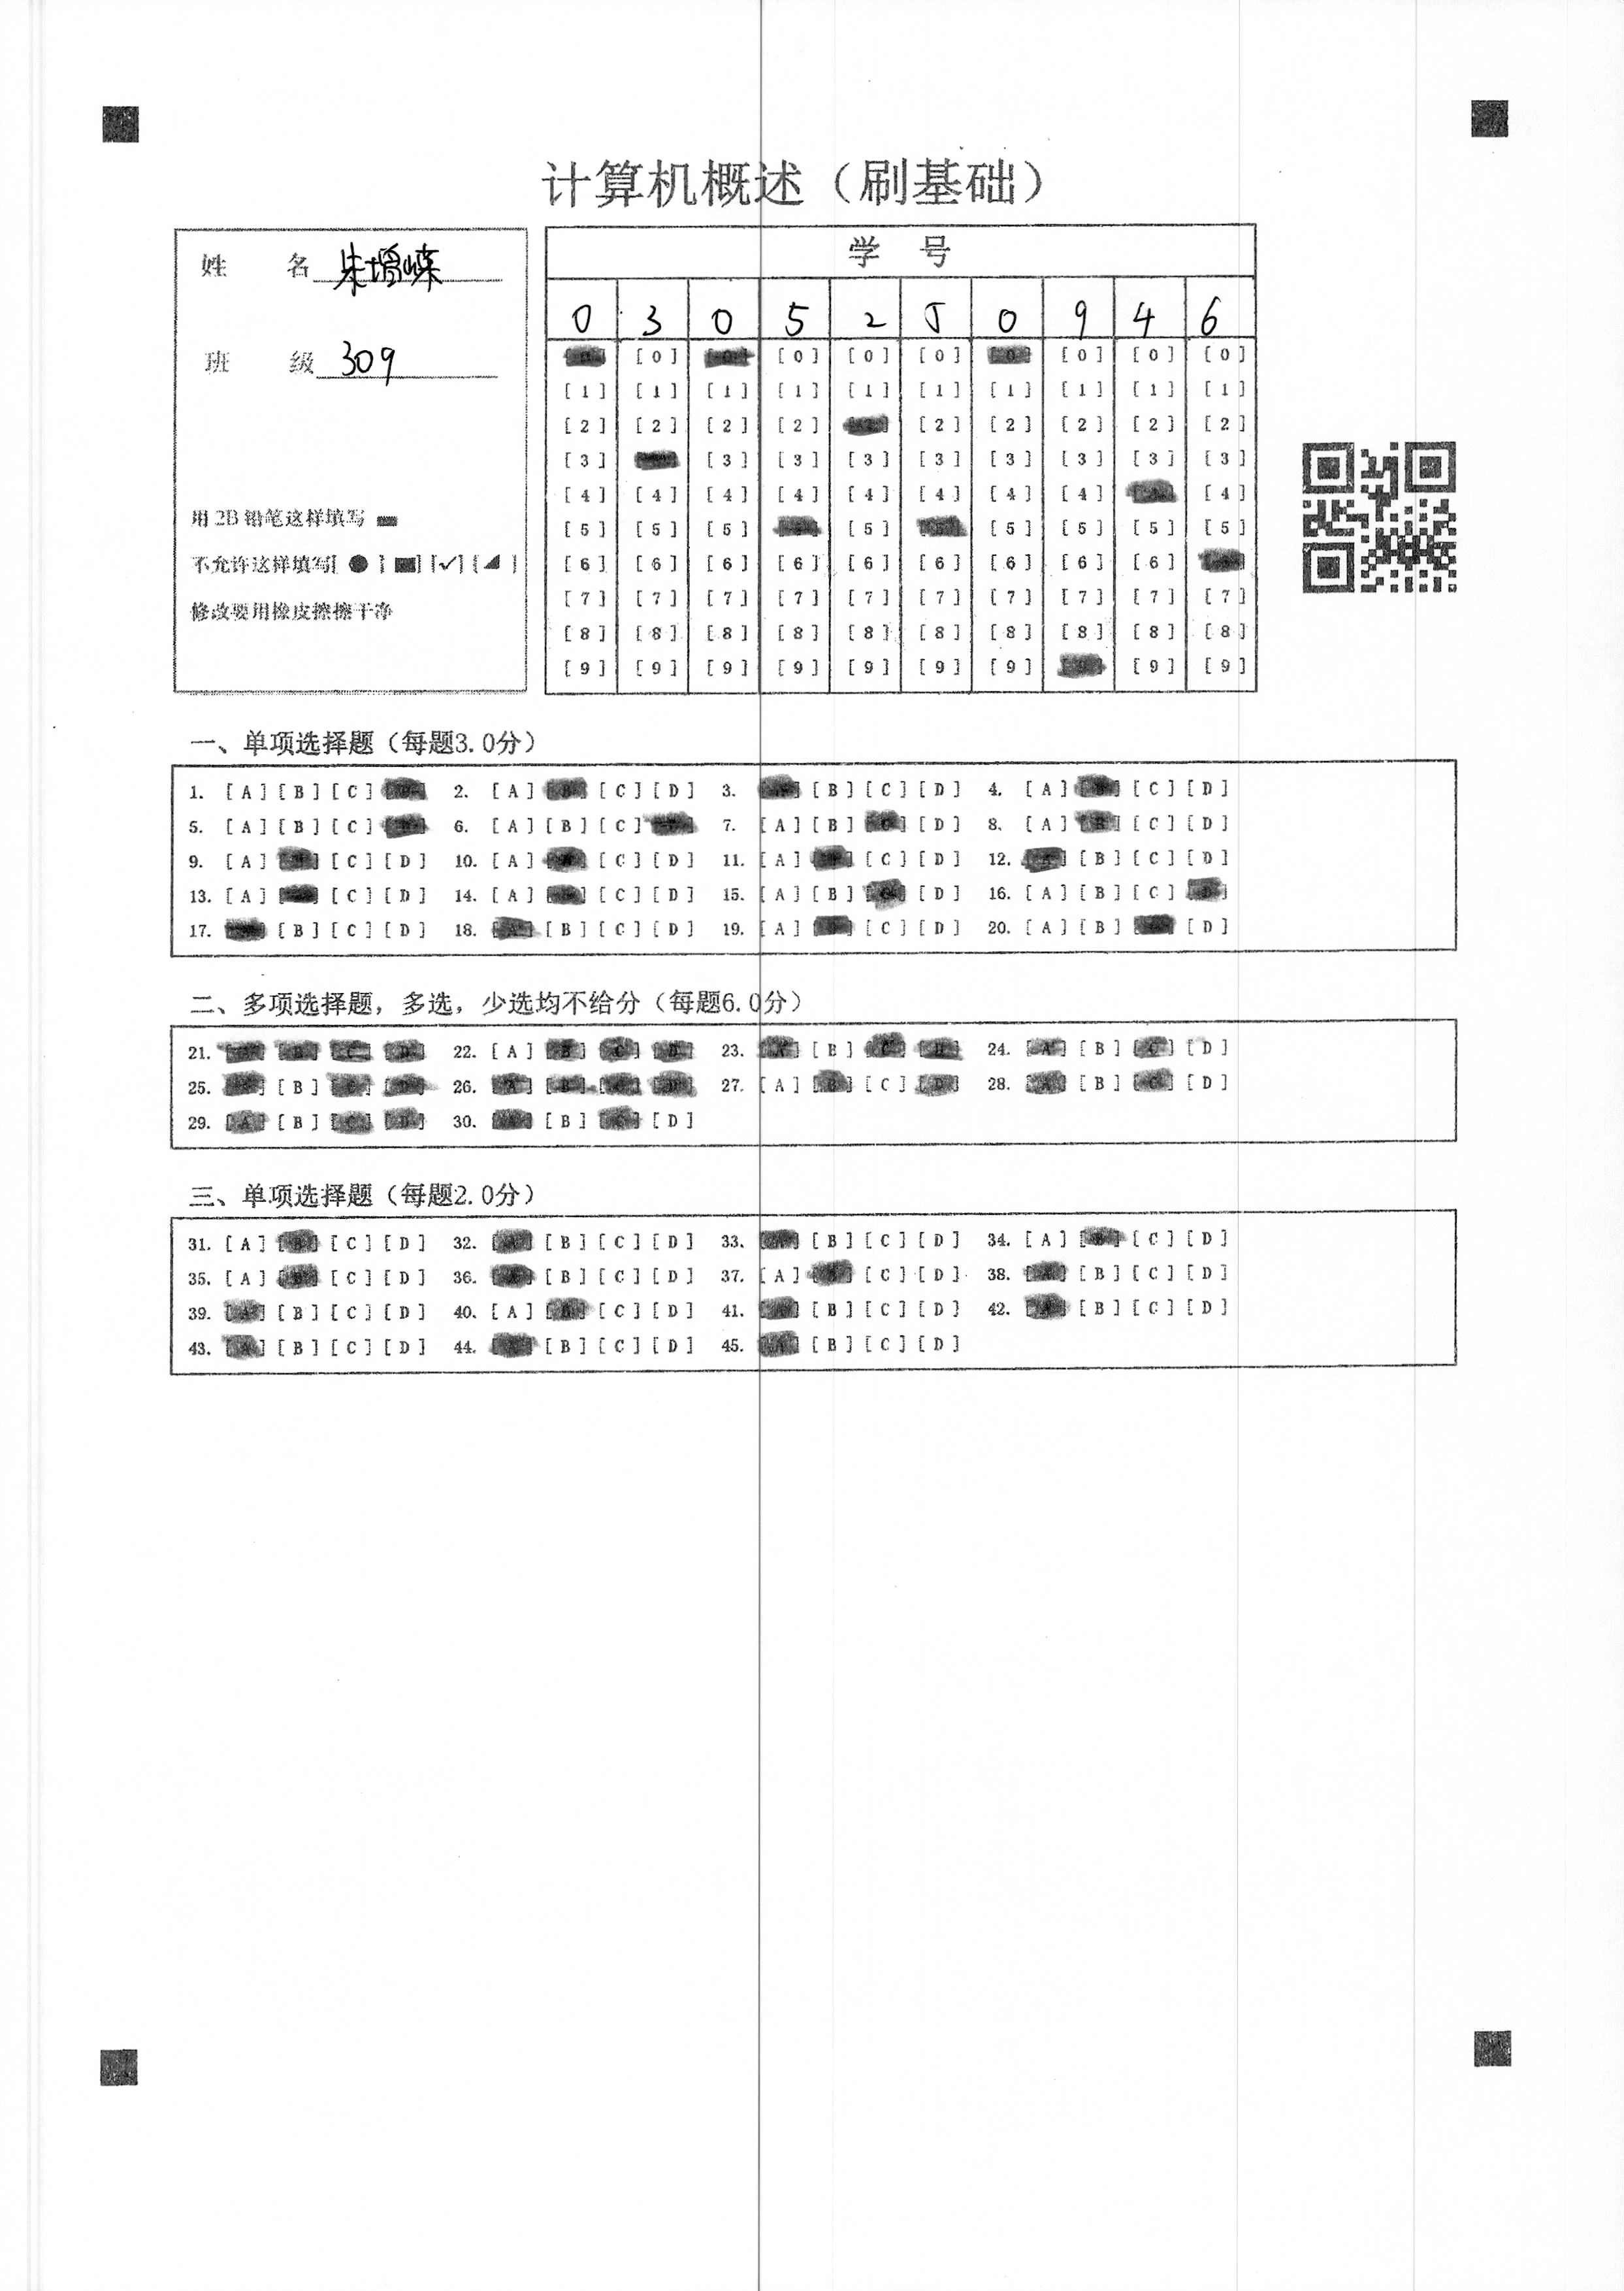 计算机概述（刷基础）
姓 名 朱增嵘
班 级 309
用 2B 铅笔这样填写
不允许这样填写[ ● ] [■] [✓] [◢ ]
修改要用橡皮擦擦干净
学 号
0 3 0 5 2 5 0 9 4 6
[0] [0] [0] [0] [0] [0] [0]
[1] [1] [1] [1] [1] [1] [1] [1] [1] [1]
[2] [2] [2] [2] [2] [2] [2] [2] [2]
[3] [3] [3] [3] [3] [3] [3] [3] [3]
[4] [4] [4] [4] [4] [4] [4] [4] [4]
[5] [5] [5] [5] [5] [5] [5] [5]
[6] [6] [6] [6] [6] [6] [6] [6] [6]
[7] [7] [7] [7] [7] [7] [7] [7] [7] [7]
[8] [8] [8] [8] [8] [8] [8] [8] [8] [8]
[9] [9] [9] [9] [9] [9] [9] [9] [9]
一、单项选择题（每题3.0分）
1. [A] [B] [C] 2. [A] [C] [D] 3. [B] [C] [D] 4. [A] [C] [D]
5. [A] [B] [C] 6. [A] [B] [C] 7. [A] [B] [D] 8. [A] [C] [D]
9. [A] [C] [D] 10. [A] [C] [D] 11. [A] [C] [D] 12. [B] [C] [D]
13. [A] [C] [D] 14. [A] [C] [D] 15. [A] [B] [D] 16. [A] [B] [C]
17. [B] [C] [D] 18. [B] [C] [D] 19. [A] [C] [D] 20. [A] [B] [D]
二、多项选择题，多选，少选均不给分（每题6.0分）
21. [A] [B] [C] [D] 22. [A] [B] [C] [D] 23. [A] [B] [C] [D] 24. [A] [B] [C] [D]
25. [B] [C] [D] 26. [A] [B] [C] [D] 27. [A] [B] [C] [D] 28. [A] [B] [C] [D]
29. [A] [B] [C] [D] 30. [A] [B] [C] [D]
三、单项选择题（每题2.0分）
31. [A] [B] [C] [D] 32. [A] [B] [C] [D] 33. [A] [B] [C] [D] 34. [A] [B] [C] [D]
35. [A] [B] [C] [D] 36. [A] [B] [C] [D] 37. [A] [B] [C] [D] 38. [A] [B] [C] [D]
39. [A] [B] [C] [D] 40. [A] [B] [C] [D] 41. [A] [B] [C] [D] 42. [A] [B] [C] [D]
43. [A] [B] [C] [D] 44. [A] [B] [C] [D] 45. [A] [B] [C] [D]